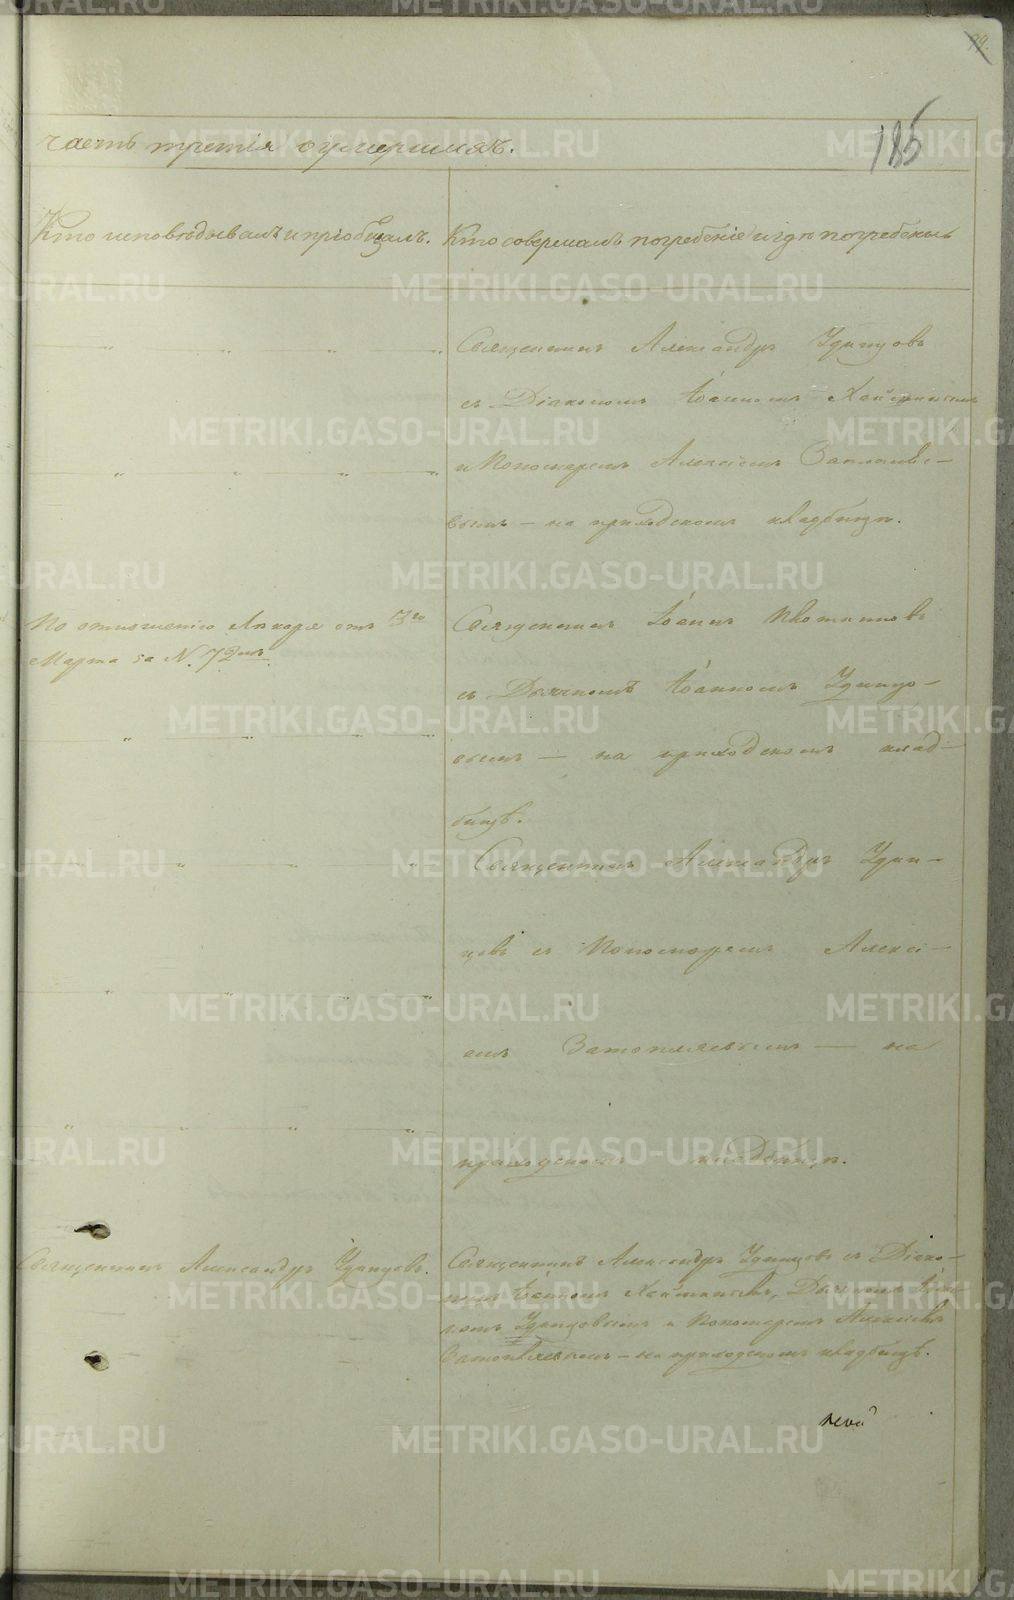 99.
185
часть третія о умершихъ.
Кто исповѣдывалъ и пріобщалъ.
Кто совершалъ погребеніе и гдѣ погребены
Священникъ Александръ Удинцовъ
съ Діакономъ Іоанномъ
и Пономаремъ Алексіемъ
вымъ — на приходскомъ кладбищѣ.
По отношенію Лѣкаря отъ 13го
Марта за N. 72мъ
Священникъ Іоаннъ
съ Дьячкомъ Іоанномъ Удинцо-
вымъ — на приходскомъ клад-
бищѣ.
Священникъ Александръ Удин-
цовъ съ Пономаремъ Алексі-
емъ Затопляевымъ — на
приходскомъ кладбищѣ.
Священникъ Александръ Удинцовъ.
Священникъ Александръ Удинцовъ съ Діако-
номъ Іоанномъ Дьячкомъ Іоан-
номъ Удинцовымъ и Пономаремъ Алексіемъ
Затопляевымъ — на приходскомъ кладбищѣ.
METRIKI.GASO-URAL.RU